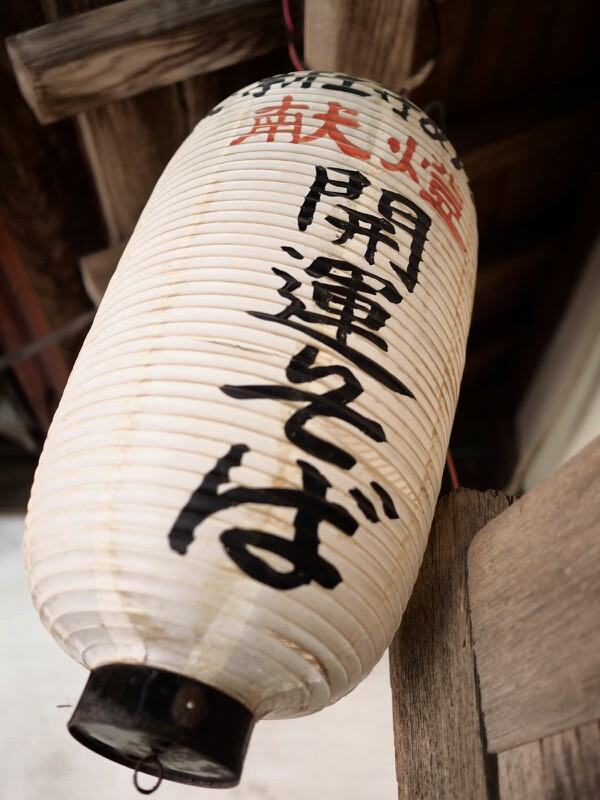 献燈
開運そば